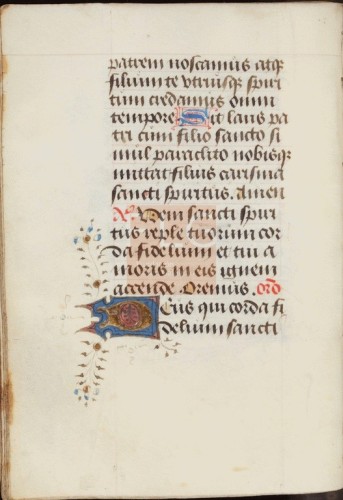 patrem noscamus atq
filium te vtriusq spiri
tum credamus omni
tempore Sit laus pa
tri cum filio sancto si
mul paraclito nobisq
mittat filius carisma
sancti spiritus. Amen
V. Veni sancti spiri
tus reple tuorum cor
da fidelium et tui a
moris in eis ignem
accende. Oremus. oro
Deus qui corda fi
delium sancti